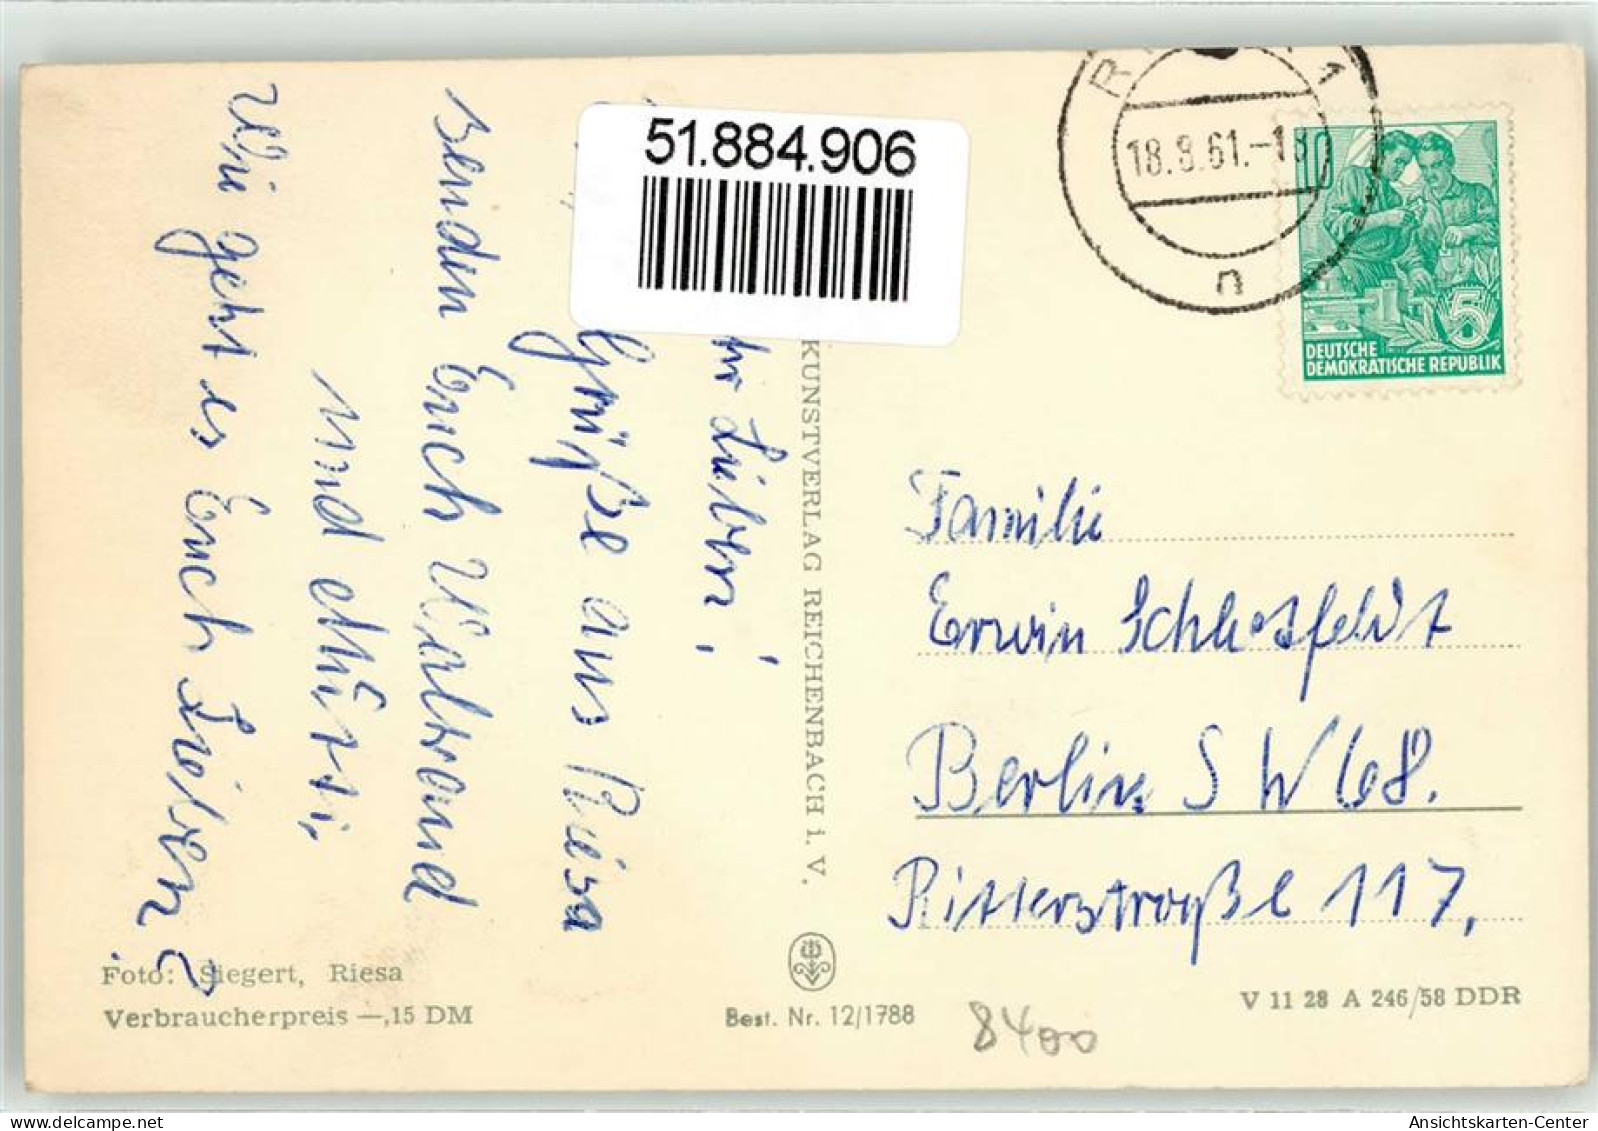 51.884.906
Ihr Lieben!
Grüße aus Riesa
senden Euch Waltraud
und
Wie geht es Euch Lieben?
KUNSTVERLAG REICHENBACH i. V.
18.9.61.-18
n
10
5
DEUTSCHE
DEMOKRATISCHE REPUBLIK
Familie
Erwin
Berlin SW 68.
Ritterstraße 117,
Foto: Siegert, Riesa
Verbraucherpreis —,15 DM
Best. Nr. 12/1788
V 11 28 A 246/58 DDR
8400
Ansichtskarten-Center